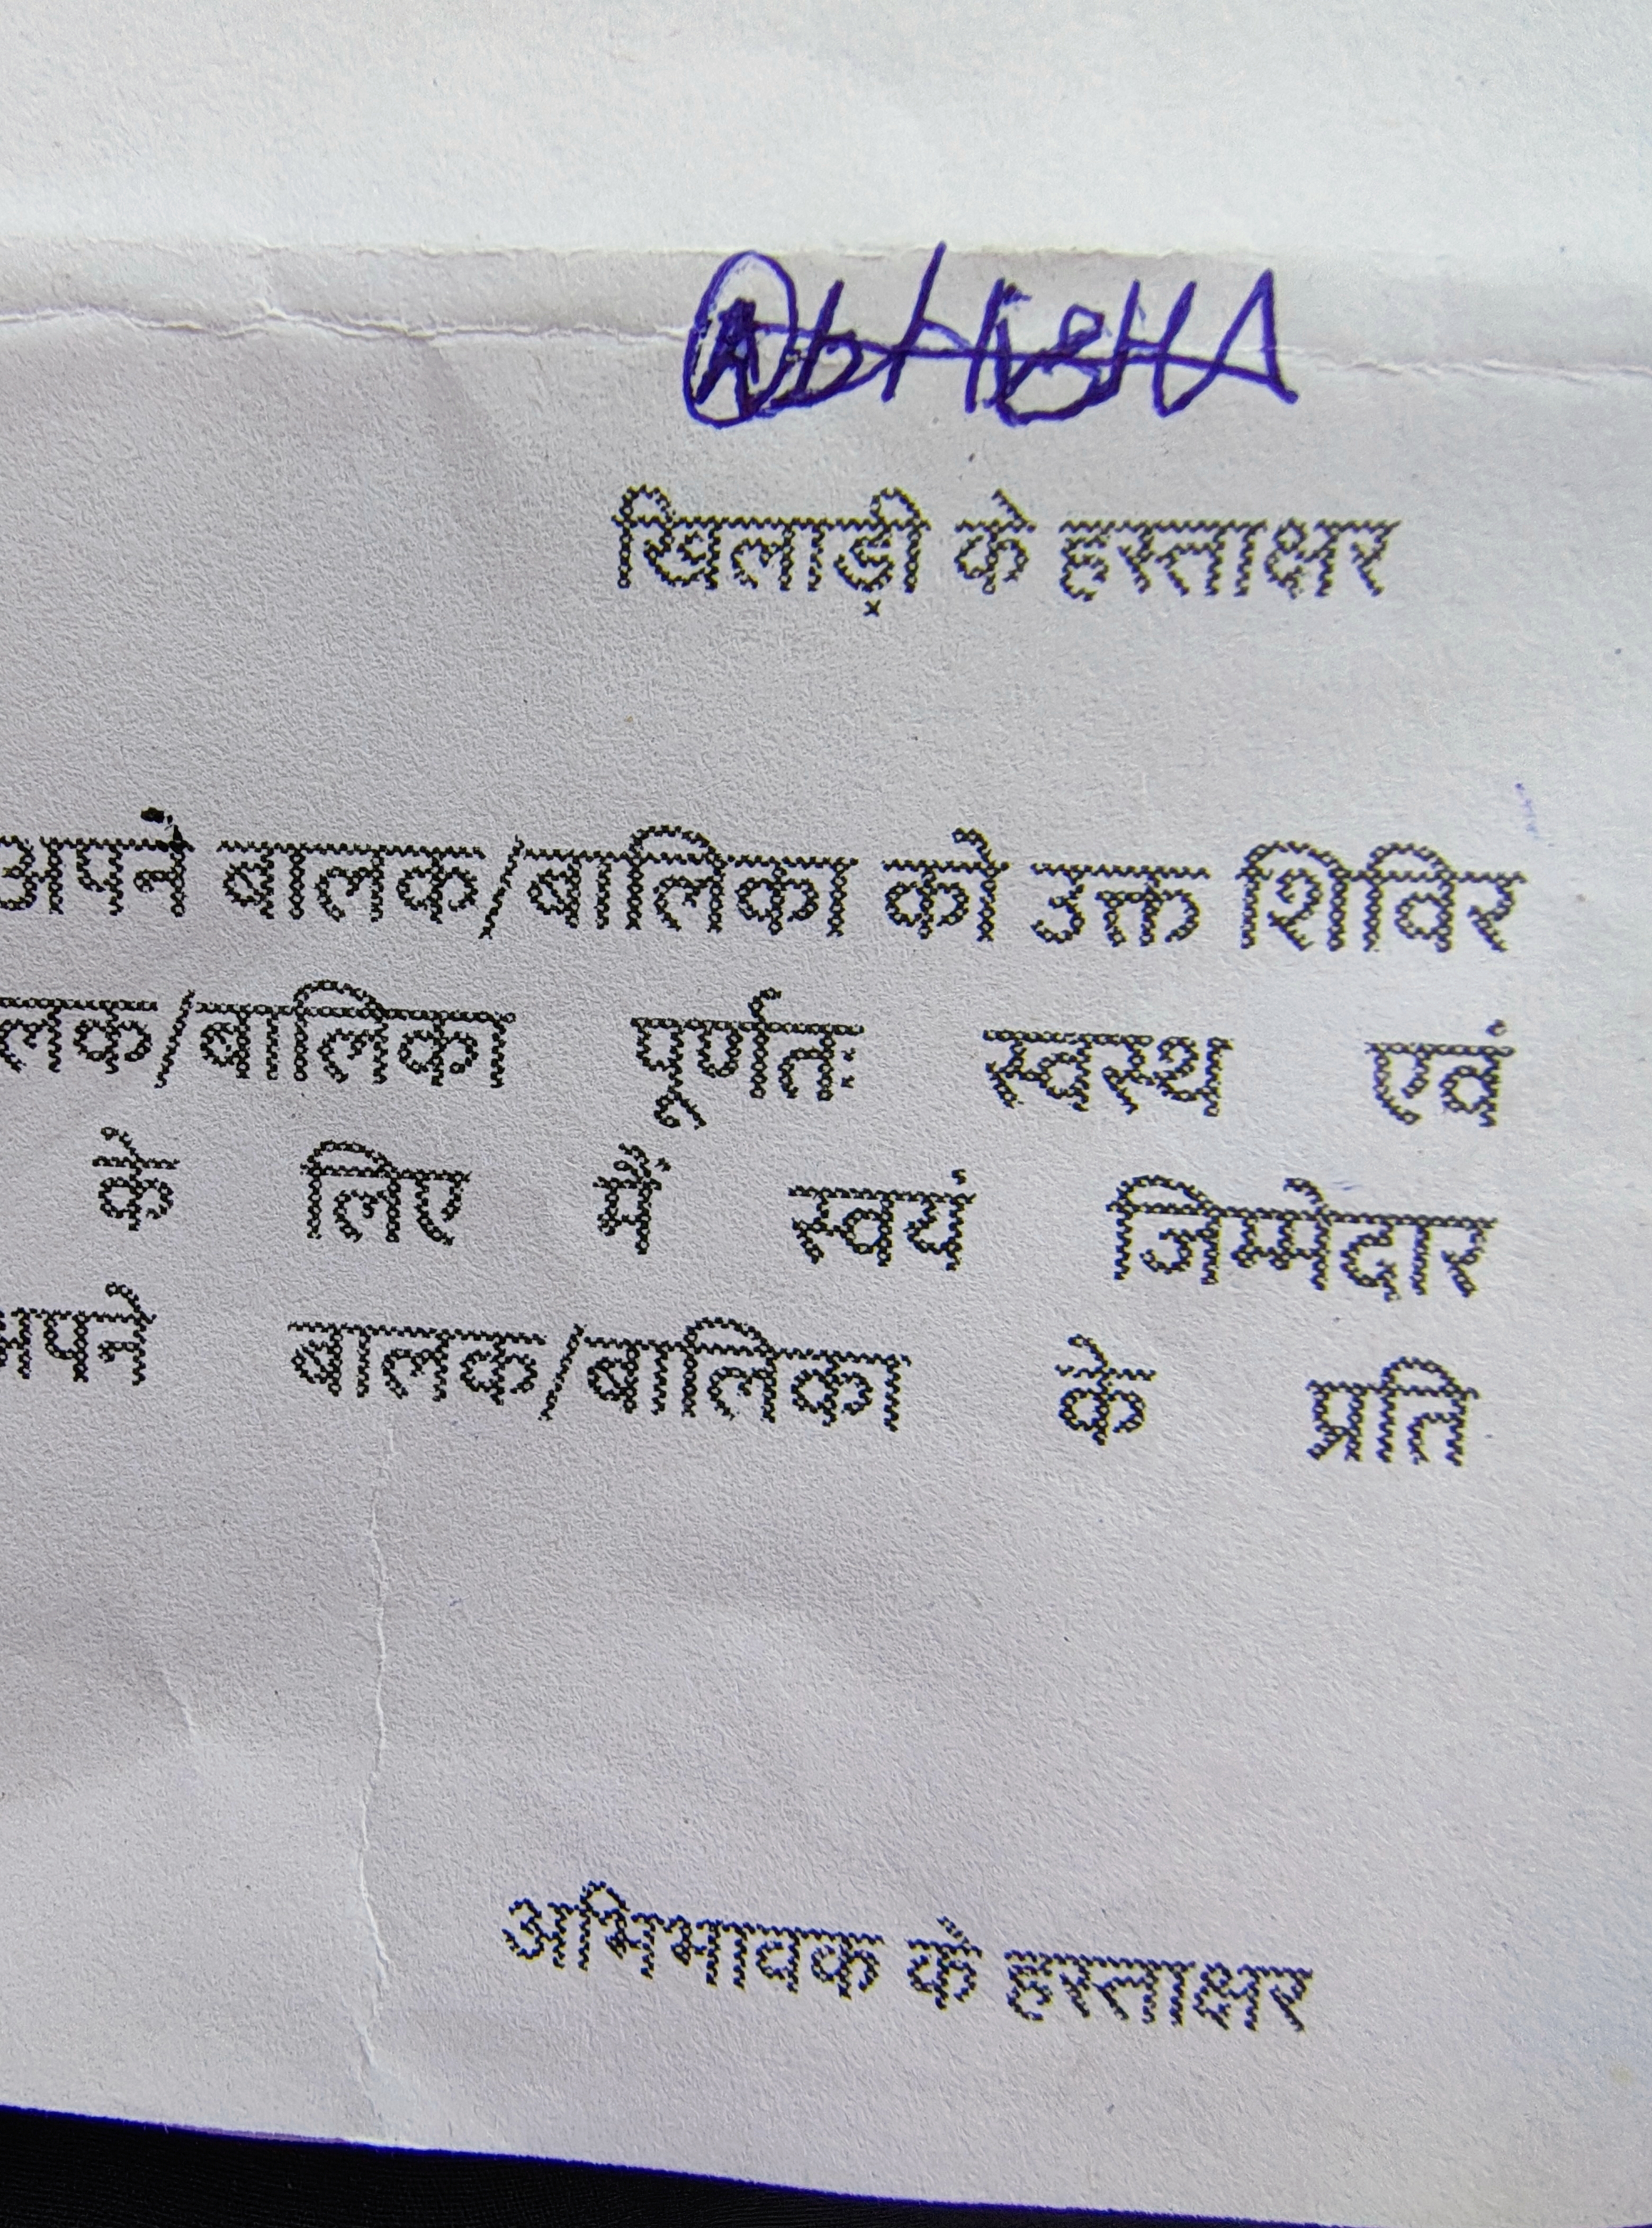 खिलाड़ी के हस्ताक्षर
अपने बालक/बालिका को उक्त शिविर
लक/बालिका पूर्णतः स्वस्थ एवं
के लिए मैं स्वयं जिम्मेदार
अपने बालक/बालिका के प्रति
अभिभावक के हस्ताक्षर